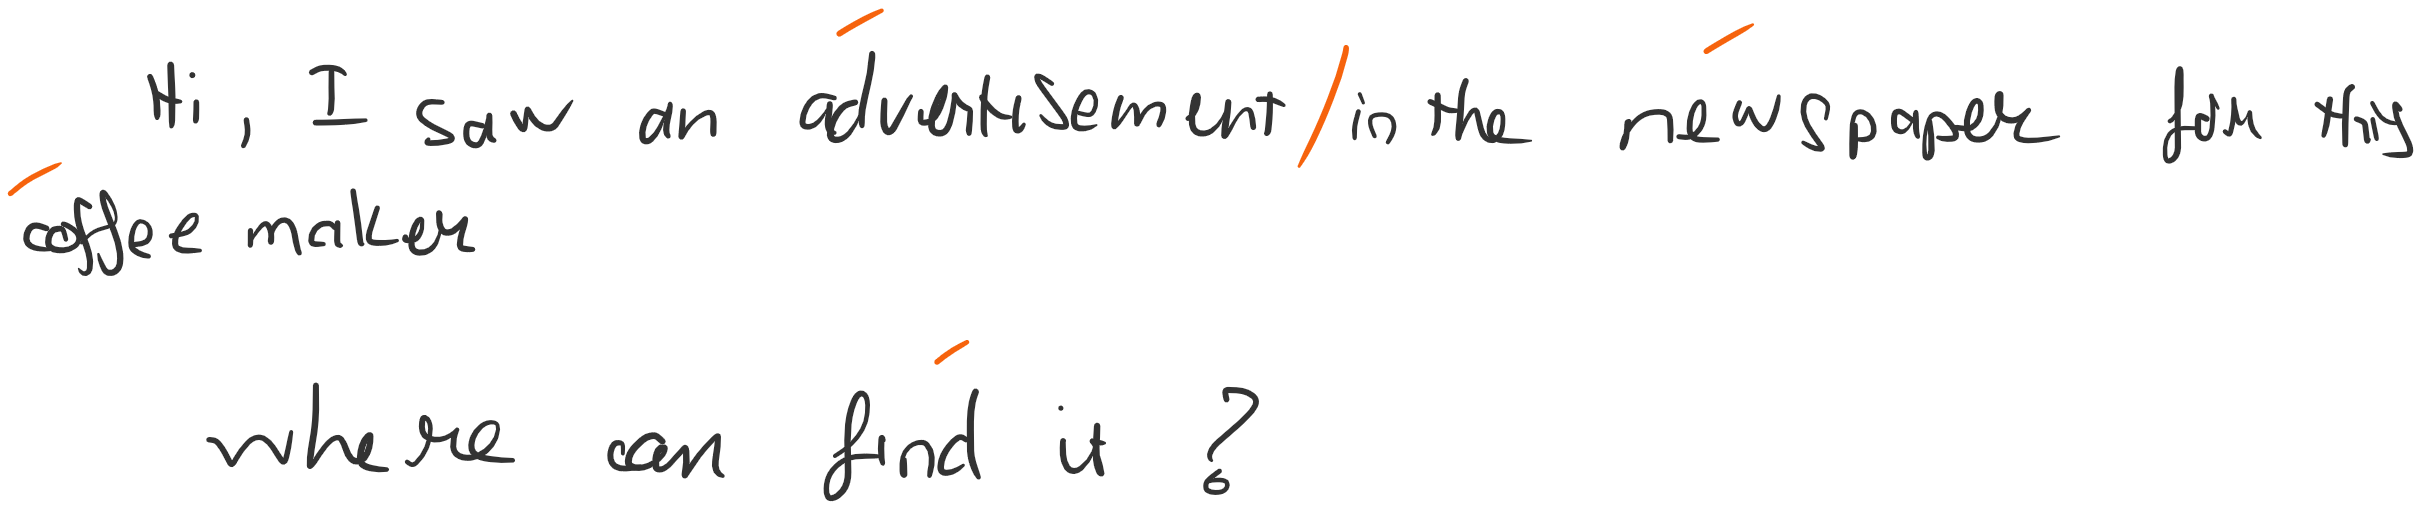 Hi, I saw an advertisement/in the newspaper for this
coffee maker
where can find it?